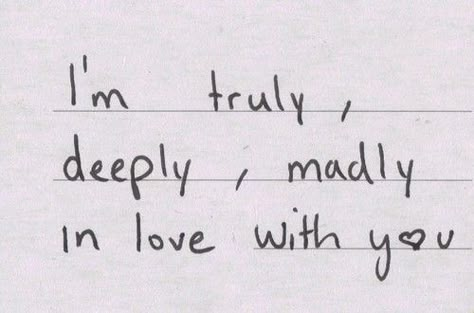 I'm truly,
deeply, madly
in love with you